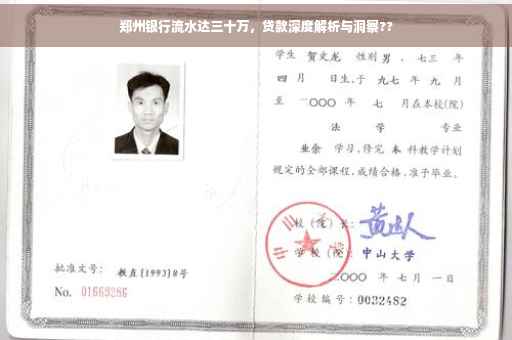 郑州银行流水达三十万，贷款深度解析与洞察??
学生 贺文龙 性别 男 ，七三 年
四 月 日生，于 九七 年 九 月
至 二〇〇〇 年 七 月在本校(院)
法 学 专业
业余 学习，修完 本 科教学计划
规定的全部课程，成绩合格，准予毕业。
校（院）长：
学 校（院）：中山大学
二〇〇〇 年 七 月 一日
学校编号：0032482
批准文号：教直[1993]8号
No. 01669286